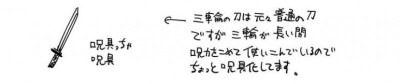 三輪の刀は元々普通の刀
ですが三輪が長い間
呪力をこめて使いこんでいるので
ちょっと呪具化してます。
呪具っちゃ
呪具